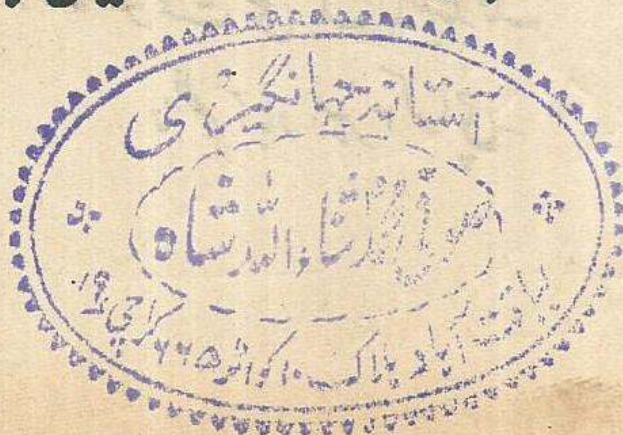 آستانہ جہانگیری
صوفی محمد ثناء اللہ شاہ
لیاقت آباد بلاک ۱۰ کوارٹر ۶۶۵ کراچی ۱۹